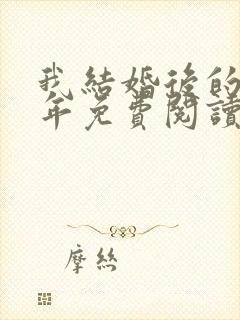 我結婚後的
年免費閱讀
摩絲